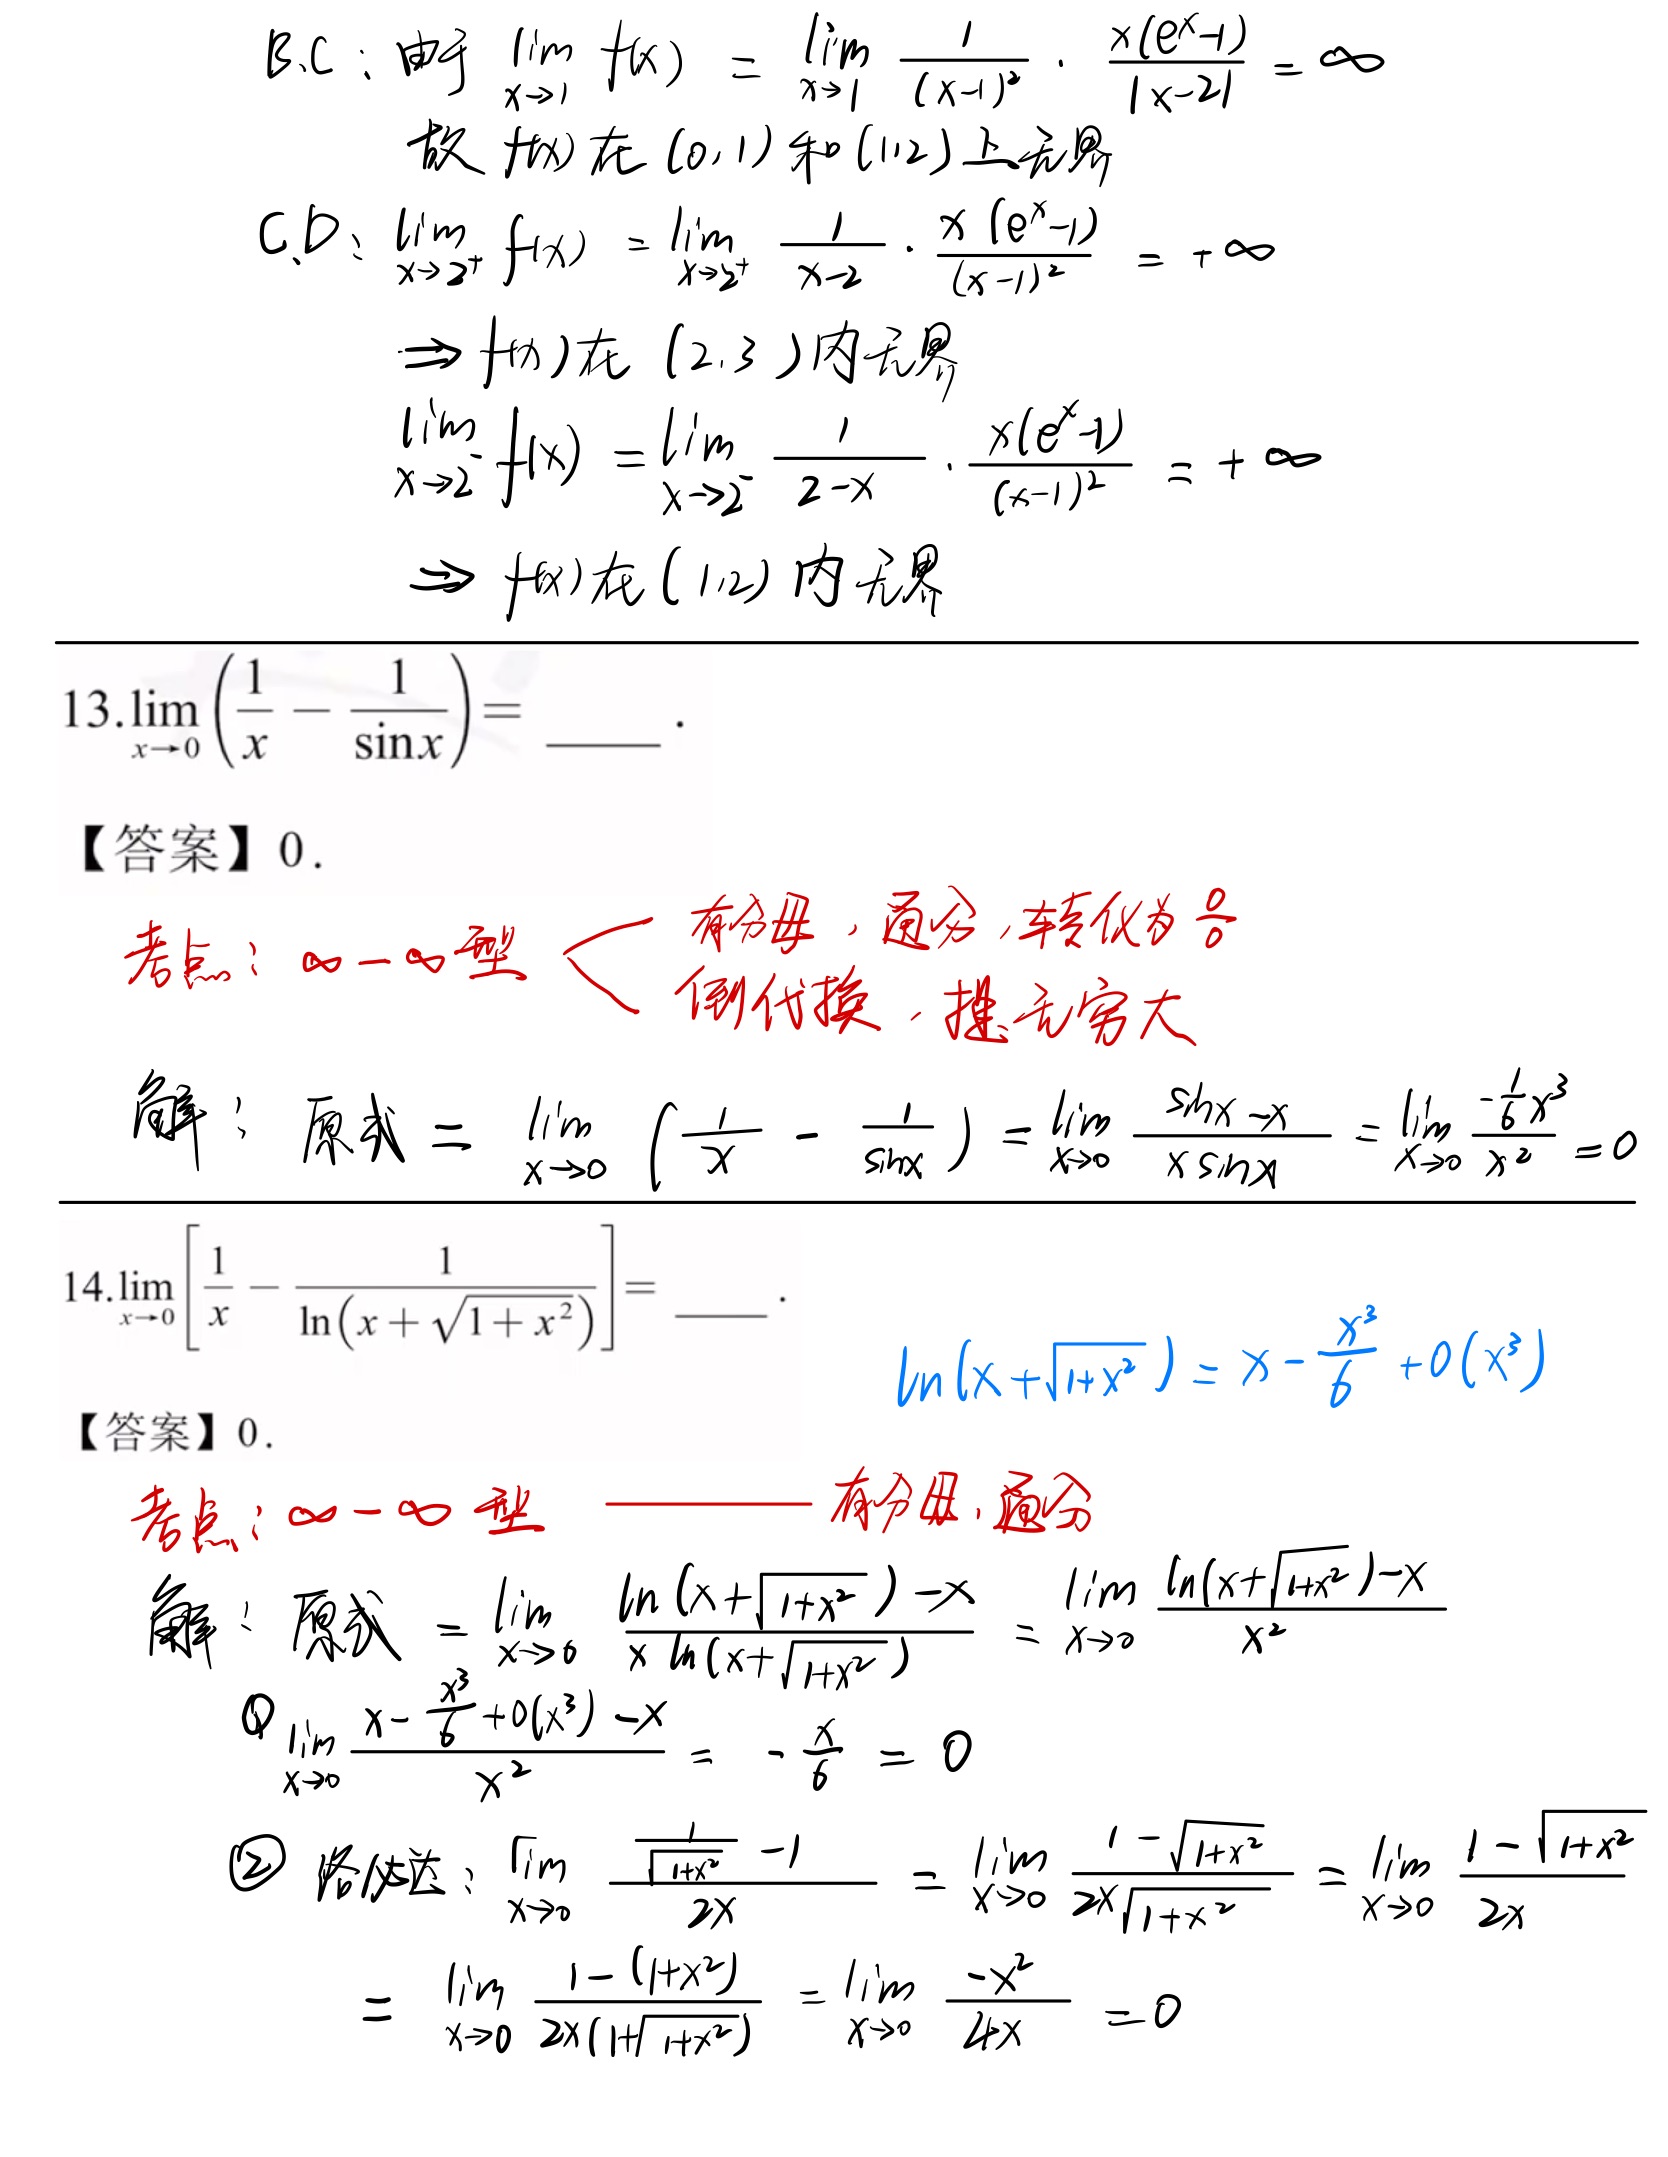 B.C：由于 lim_{x→1} f(x) = lim_{x→1} 1/(x-1)² · x(eˣ-1)/|x-2| = ∞
故 f(x) 在 (0,1) 和 (1,2) 上无界
C.D：lim_{x→2⁺} f(x) = lim_{x→2⁺} 1/(x-2) · x(eˣ-1)/(x-1)² = +∞
⇒ f(x) 在 (2,3) 内无界
lim_{x→2⁻} f(x) = lim_{x→2⁻} 1/(2-x) · x(eˣ-1)/(x-1)² = +∞
⇒ f(x) 在 (1,2) 内无界
13. lim_{x→0} (1/x - 1/sin x) = ____ .
【答案】0.
考点：∞-∞型 < 有分母，通分，转化为 0/0
倒代换，提无穷大
解：原式 = lim_{x→0} (1/x - 1/sinx) = lim_{x→0} (sinx-x)/(x sinx) = lim_{x→0} (-1/6 x³)/x² = 0
14. lim_{x→0} [1/x - 1/ln(x+√(1+x²))] = ____ .
ln(x+√(1+x²)) = x - x³/6 + o(x³)
【答案】0.
考点：∞-∞型 —— 有分母，通分
解：原式 = lim_{x→0} (ln(x+√(1+x²))-x)/(x ln(x+√(1+x²))) = lim_{x→0} (ln(x+√(1+x²))-x)/x²
① lim_{x→0} (x - x³/6 + o(x³) - x)/x² = -x/6 = 0
② 洛必达：lim_{x→0} (1/√(1+x²) - 1)/2x = lim_{x→0} (1-√(1+x²))/(2x√(1+x²)) = lim_{x→0} (1-√(1+x²))/2x
= lim_{x→0} (1-(1+x²))/(2x(1+√(1+x²))) = lim_{x→0} -x²/4x = 0